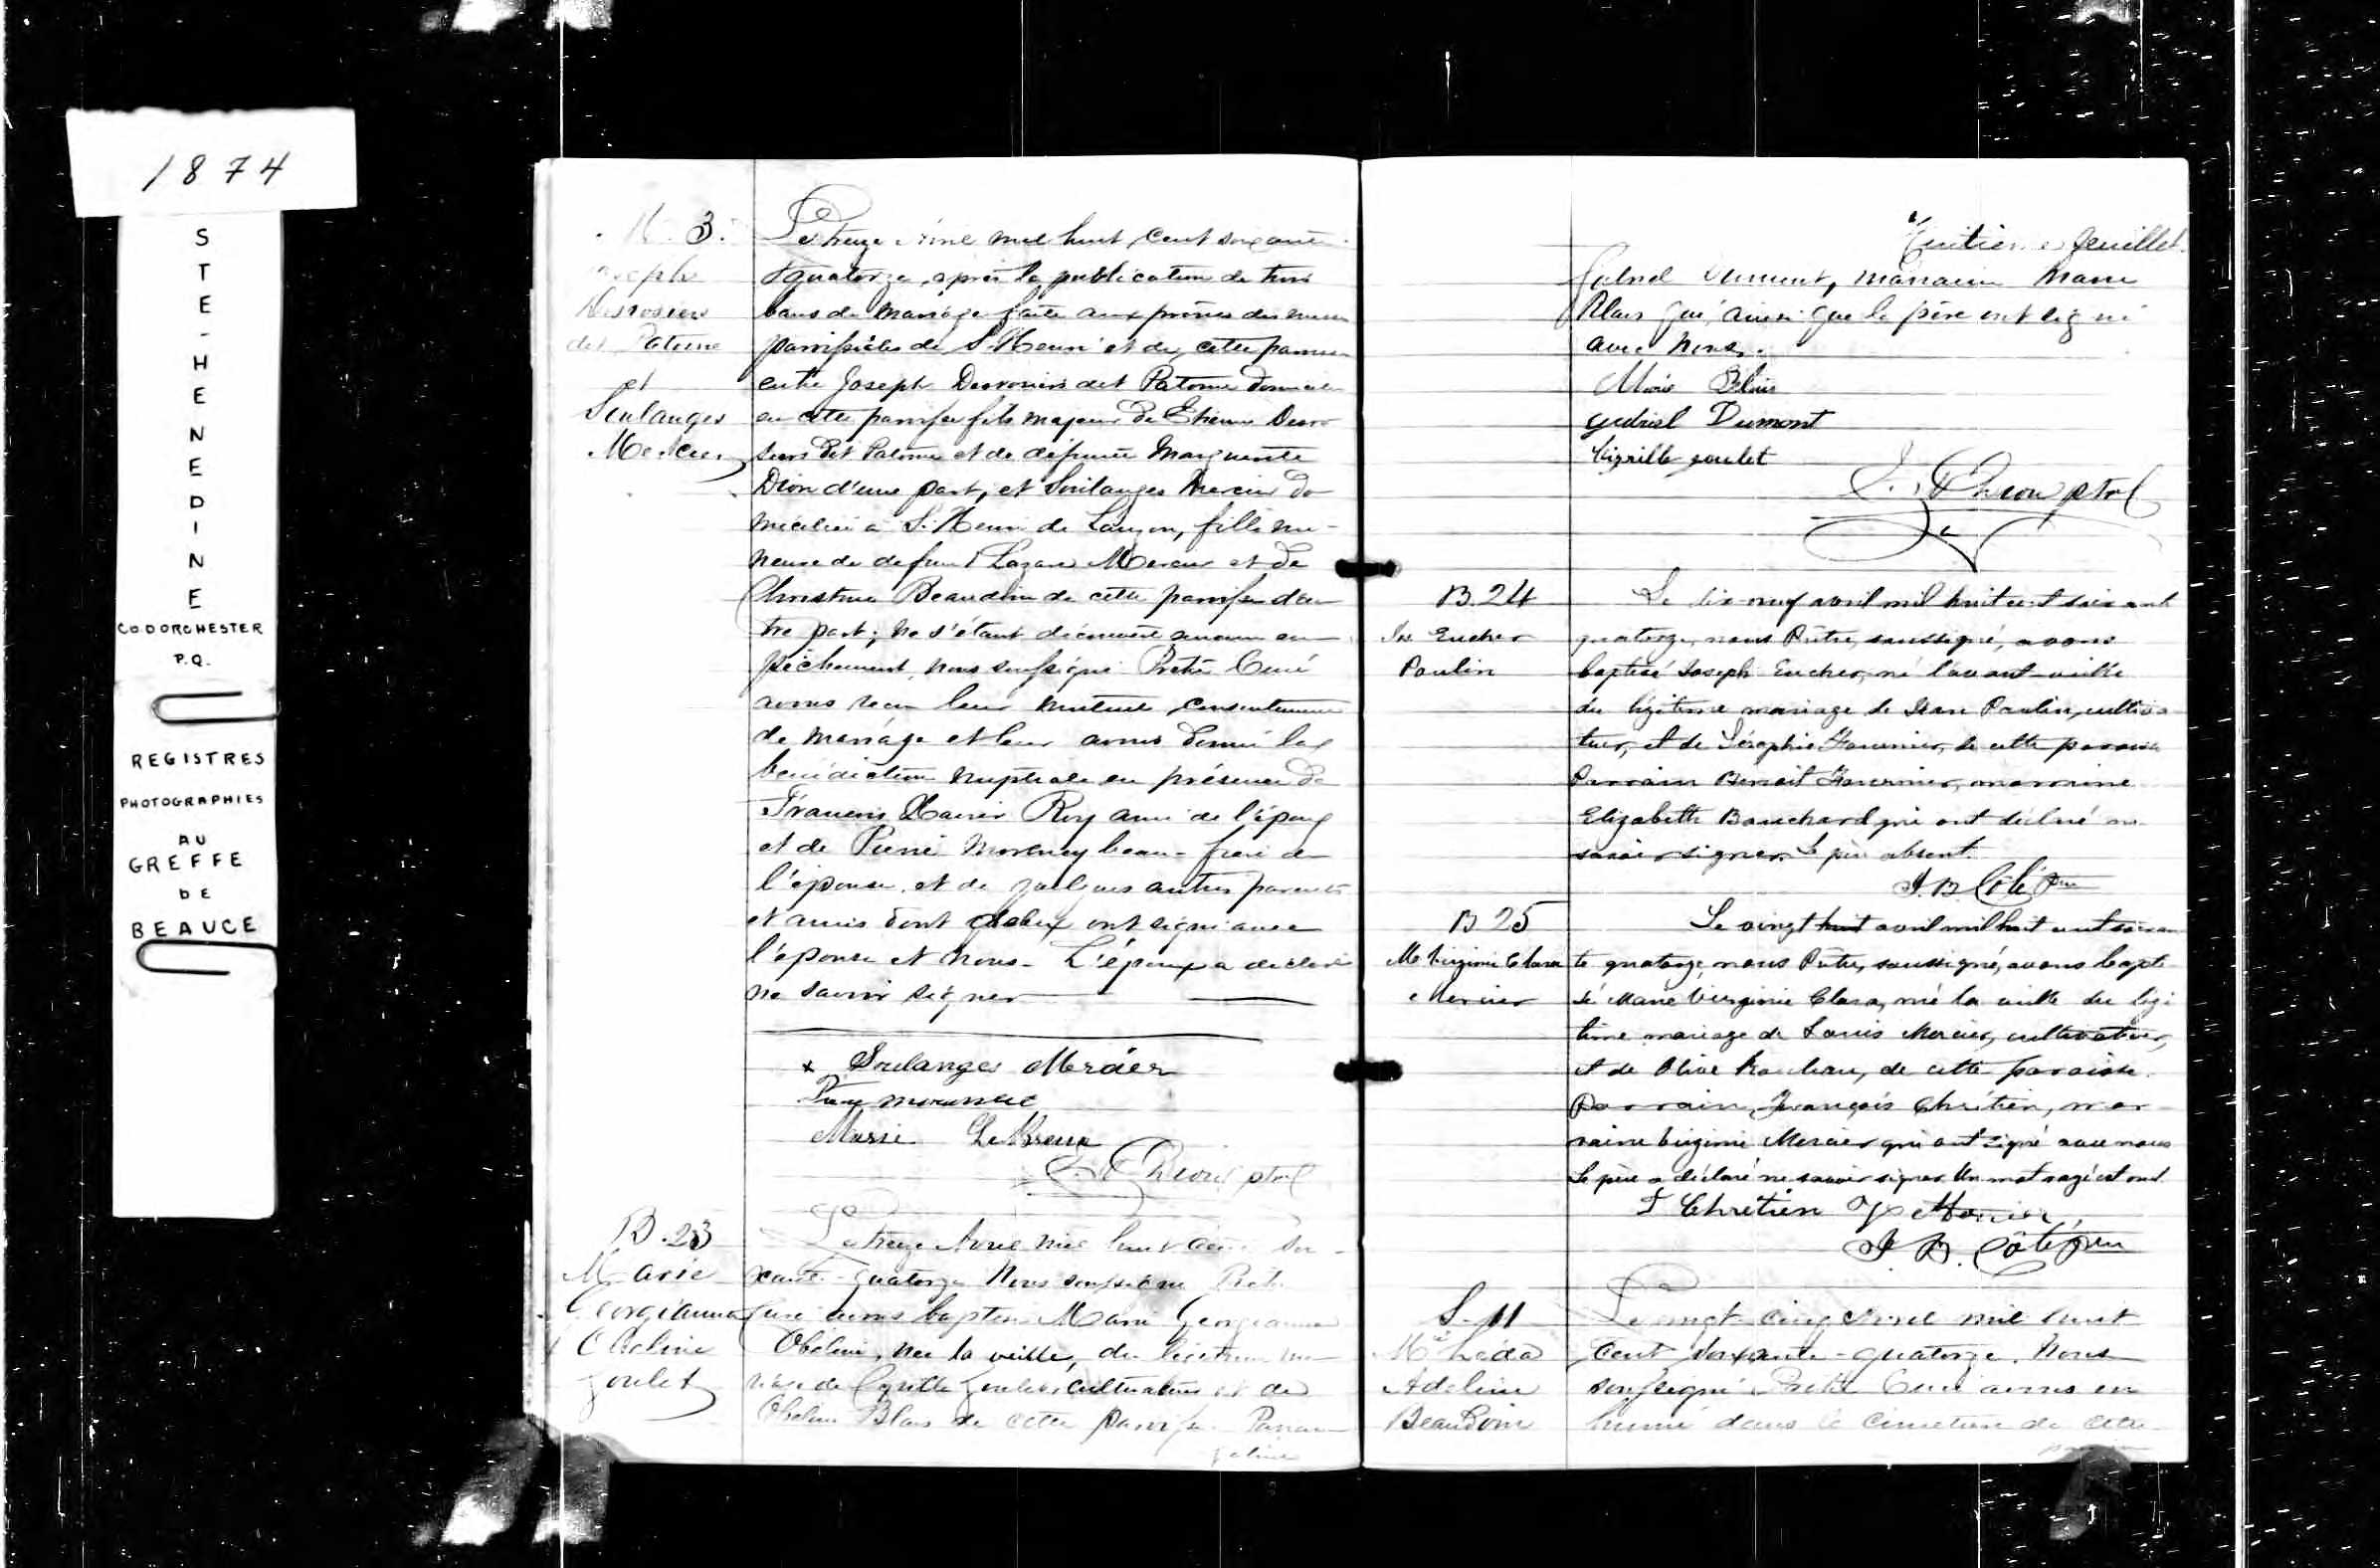 1874
STE-HENEDINE
CO. DORCHESTER
P.Q.
REGISTRES
PHOTOGRAPHIES
AU
GREFFE
DE
BEAUCE
M. 3.
Joseph
Desrosiers
dit Patoine
et
Soulanges
Mercier
Le treize Avril mil huit cent soixante
& quatorze, après la publication de trois
bans de mariage faite aux prônes des messes
paroissiales de St Henri et de cette paroisse
entre Joseph Desrosiers dit Patoine domicilié
en cette paroisse fils majeur de Etienne Desro
siers dit Patoine et de défunte Marguerite
Dion d'une part, et Soulanges Mercier do
miciliée à St Henri de Lauzon, fille mi-
neure de defunt Lazare Mercier et de
Christine Beaudoin de cette paroisse d'au
tre part; ne s'étant découvert aucun em
pêchement, nous soussigné Prêtre Curé
avons reçu leur mutuel consentement
de mariage et leur avons donné la
bénédiction nuptiale en présence de
Francois Xavier Roy ami de l'époux
et de Pierre Morency beau-frère de
l'épouse, et de quelques autres parents
et amis dont quelques ont signé avec
l'épouse et nous. L'époux a déclaré
ne savoir signer
x Soulanges Mercier
Marie
ptre
B. 23
Marie
Georgianna
Obeline
Goulet
Le treize Avril mil huit cent soi-
xante-quatorze Nous soussigné Prêtre
Curé avons baptisé Marie Georgianna
Obeline, née la veille, du légitime ma
riage de Cyrille Goulet cultivateur et de
Obeline Blais de cette paroisse. Parrain
feuillet.
Gabriel Dumont, marraine Marie
Blais qui, ainsi que le père ont signé
avec nous.
Marie Blais
gabriel Dumont
Cirille goulet
ptre
B. 24
Jos Eucher
Poulin
Le dix-neuf avril mil huit cent soixante
quatorze, nous Prêtre, soussigné, avons
baptisé Joseph Eucher, né l'avant-veille
du légitime mariage de Jean Poulin, cultiva
teur, et de Séraphie Fournier, de cette paroisse
Parrain Benoit Fournier, marraine
Elizabeth Bouchard qui ont déclaré ne
savoir signer. Le père absent.
J. B. Côté Ptre
B 25
M Virginie Clara
Mercier
Le vingt huit avril mil huit cent soixan
te quatorze, nous Prêtre, soussigné, avons bapti
sé Marie Virginie Clara, née la veille du légi
time mariage de Louis Mercier, cultivateur,
et de Olive, de cette paroisse.
Parrain, François Chrétien, mar
raine Virginie Mercier qui ont signé avec nous
Le père a déclaré ne savoir signer. Un mot rayé est nul
F Chrétien V Mercier
J. B. Côté Ptre
S. 11
Mie Léda
Adeline
Beaudoin
Le vingt cinq Avril mil huit
cent soixante-quatorze. Nous
soussigné Prêtre Curé avons in
humé dans le Cimetière de cette